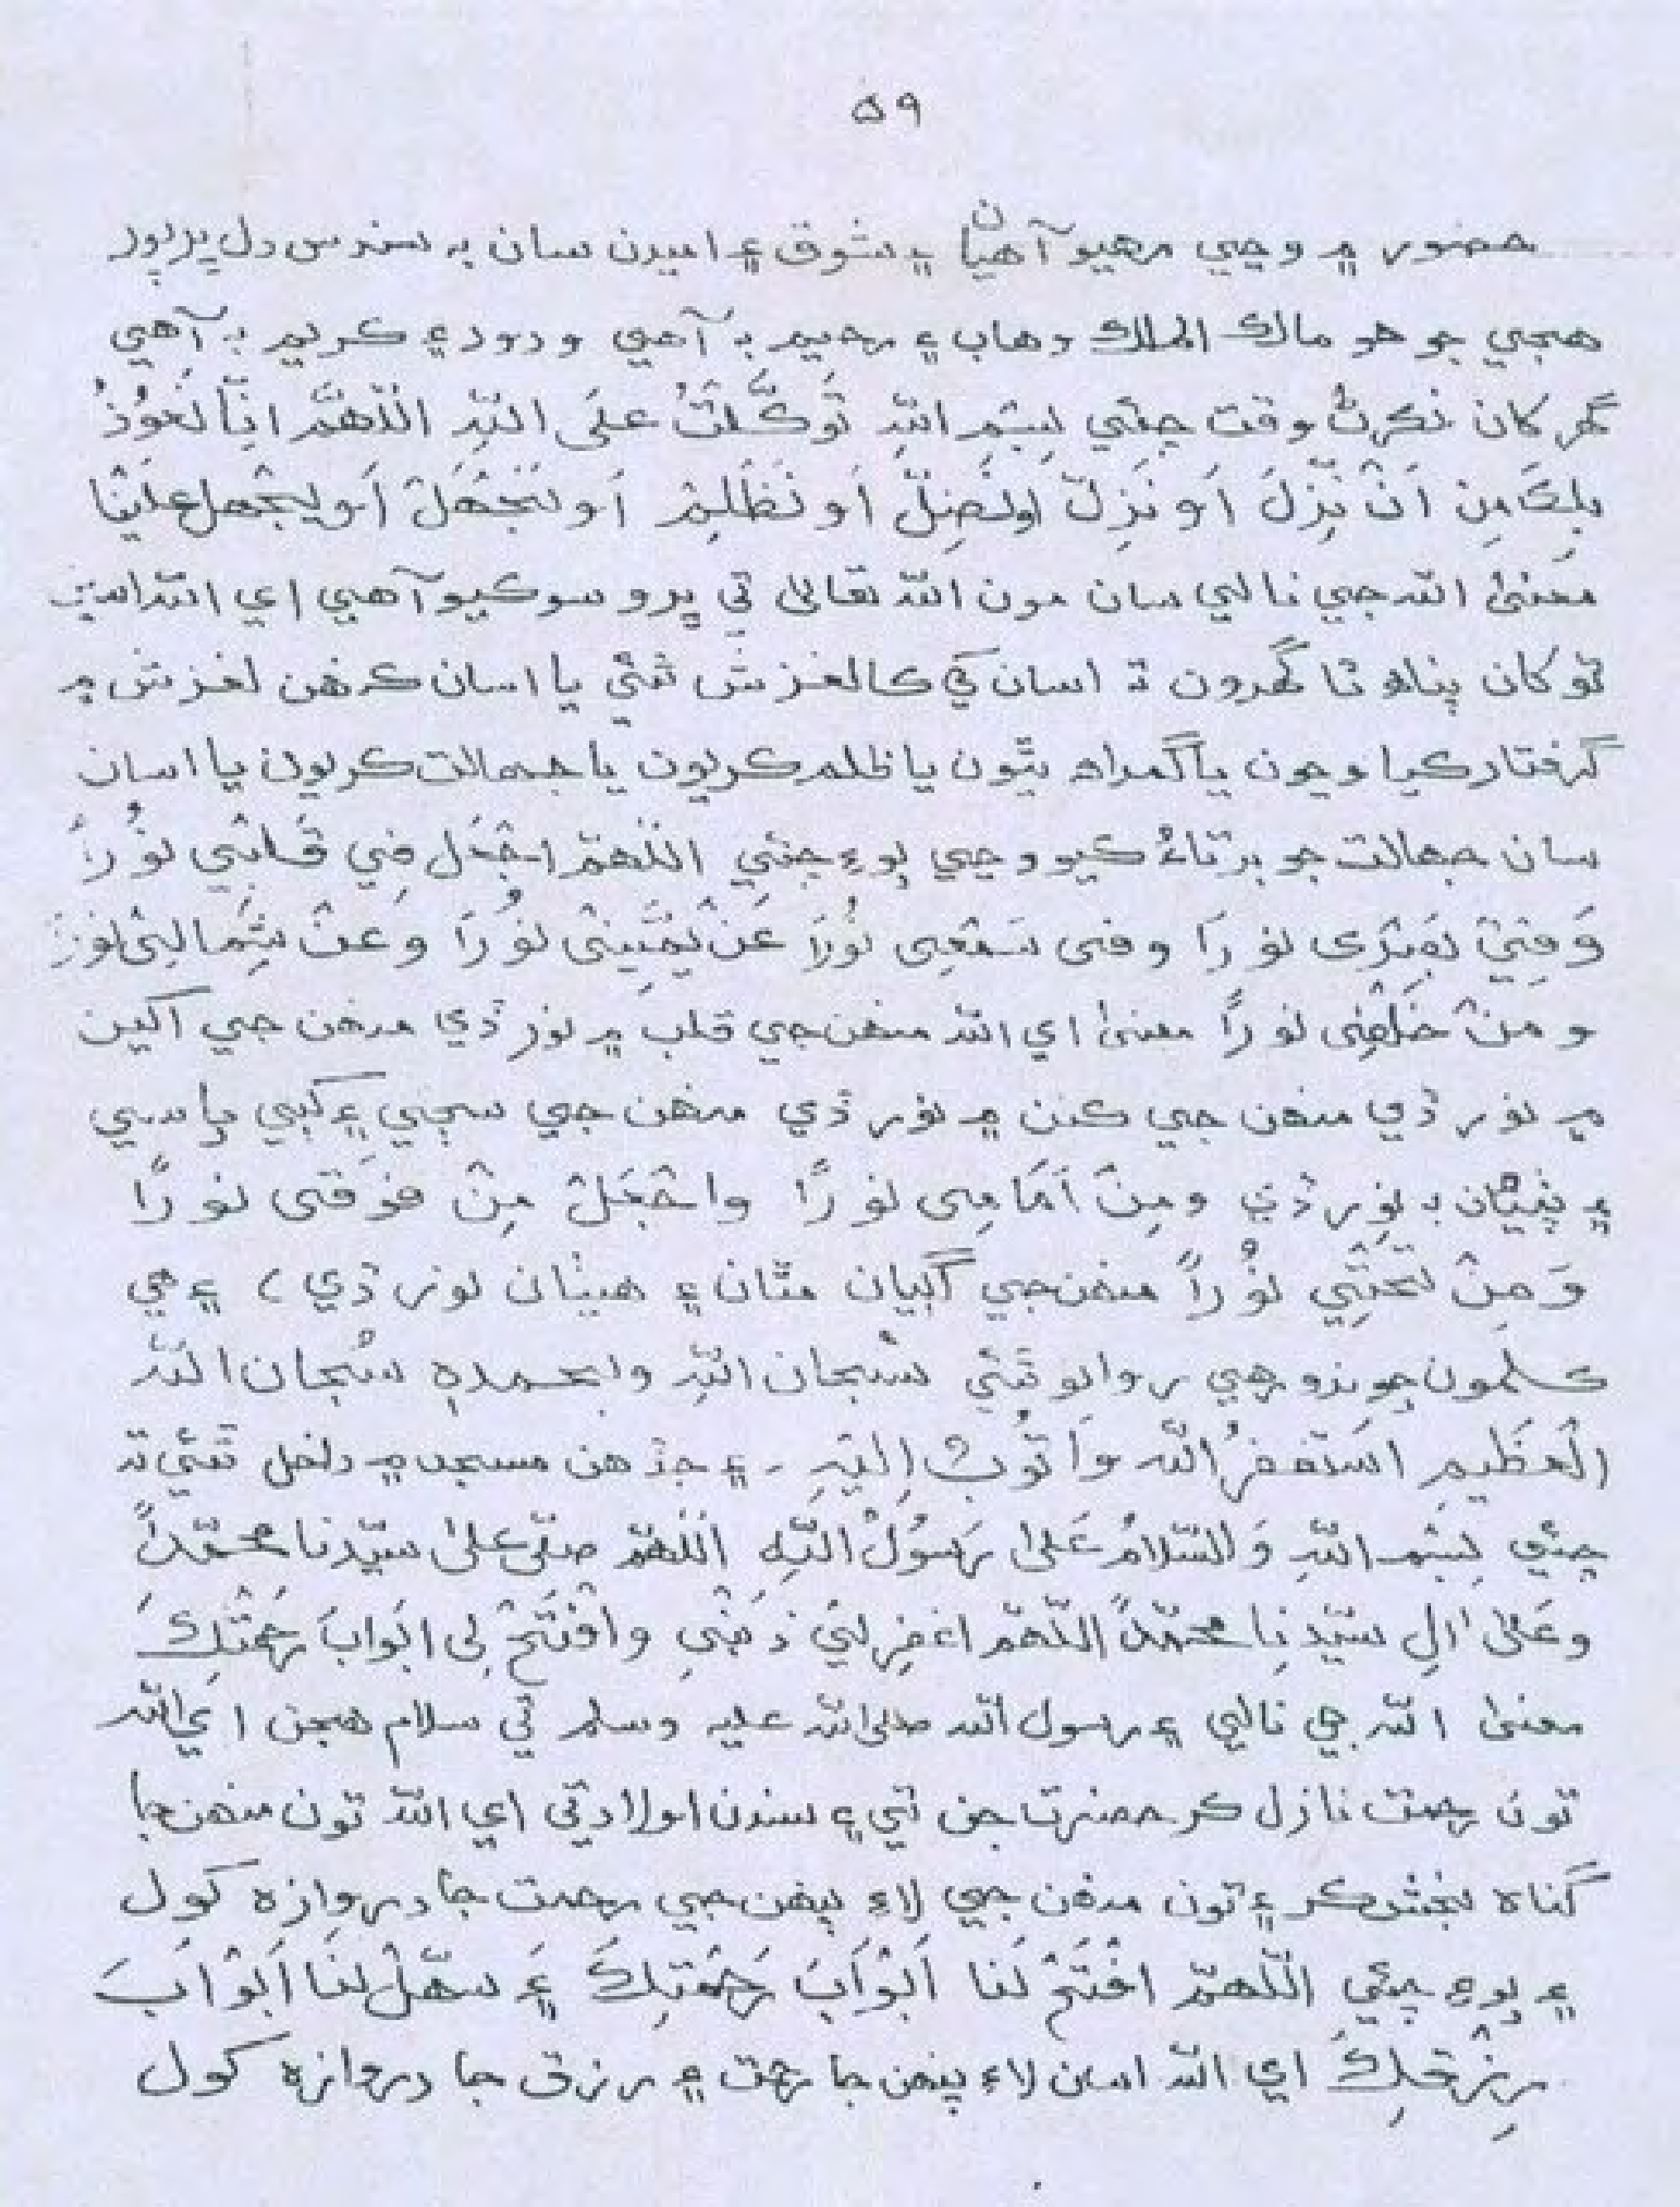 ۵۹
حضور ۾ وڃي رهيو آهيان ۽ شوق ۽ اميدن سان به سندس دل ڀرپور
هجي جو هو مالڪ الملڪ وهاب ۽ رحيم به آهي ودود ۽ ڪريم به آهي
گهر کان نڪرڻ وقت چئي بِسْمِ اللّٰهِ تَوَكَّلْتُ عَلَى اللّٰهِ اَللّٰهُمَّ اِنَّا نَعُوْذُ
بِكَ مِن اَنْ نَّزِلَّ اَو نَزِلّ اَونَضِلّ اَو نَظْلِمْ اَو نَجْهَلْ اَو يجْهل علَيْنا
معنيٰ الله جي نالي سان مون الله تعاليٰ تي ڀروسو ڪيو آهي اي الله اسين
توکان پناهه ٿا گهرون ته اسان کي ڪا لغزش ٿئي يا اسان ڪنهن لغزش ۾
گرفتار ڪيا وڃون يا گمراهه ٿيون يا ظلم ڪريون يا جهالت ڪريون يا اسان
سان جهالت جو برتاءُ ڪيو وڃي پوءِ چئي اللّٰهمّ اجْعَل فِي قَلبِي نُوْرًا
وَفِيْ بَصَرِى نورًا وفى سَمْعِى نُورًا عَنْ يَّمِيْنِىْ نُوْرًا وَعَنْ شِمَالِىْ نورًا
و مِنْ خَلْفِى نورًا معنيٰ اي الله منهن جي قلب ۾ نور ڏي منهن جي اکين
۾ نور ڏي منهن جي ڪنن ۾ نور ڏي منهن جي سڄي ۽ کٻي پاسي
۽ پٺيان به نور ڏي ومِنْ اَمَامِى نورًا واجْعَلْ مِنْ فَوقى نورًا
وَمِنْ تَحْتِي نُوْرًا منهن جي اڳيان مٿان ۽ هيٺان نور ڏي ) ۽ هي
ڪلمون چوندو رهي روانو ٿئي سُبحان اللّٰهِ وابحمدهٖ سُبحان اللّٰه
الْعَظِيمِ اَسْتَغفرُ اللّٰه وَاَتُوبُ اِلَيْهِ ۔ ۽ جڏهن مسجد ۾ داخل ٿئي ته
چئي بِسْمِ اللّٰهِ وَالسّلَامُ عَلىٰ رَسُوْلُ اللّٰهِ اَللّٰهُمّ صلّى علىٰ سيّدنا محمّدً
وعَلىٰ اٰلِ سيّدِنا محمّدً اللّٰهمّ اغفِرلِي ذَنبِي وافْتَحْ لِى ابَوابَ رَحْمَتِكَ
معنيٰ الله جي نالي ۽ رسول الله صلى الله عليه وسلم تي سلام هجن اي الله
تون رحمت نازل ڪر حضرت جن تي ۽ سندن اولاد تي اي الله تون منهن جا
گناه بخش ڪر ۽ تون منهن جي لاءِ پنهن جي رحمت جا دروازه کول
۽ پوءِ چئي اللّٰهمّ افْتَحْ لَنا اَبْوَابَ رَحْمَتِكَ ۽َ سهّلْ لَنَا اَبْوَابَ
رِزْقِكَ اي الله اسان لاءِ پنهن جا رحمت ۽ رزق جا دروازه کول